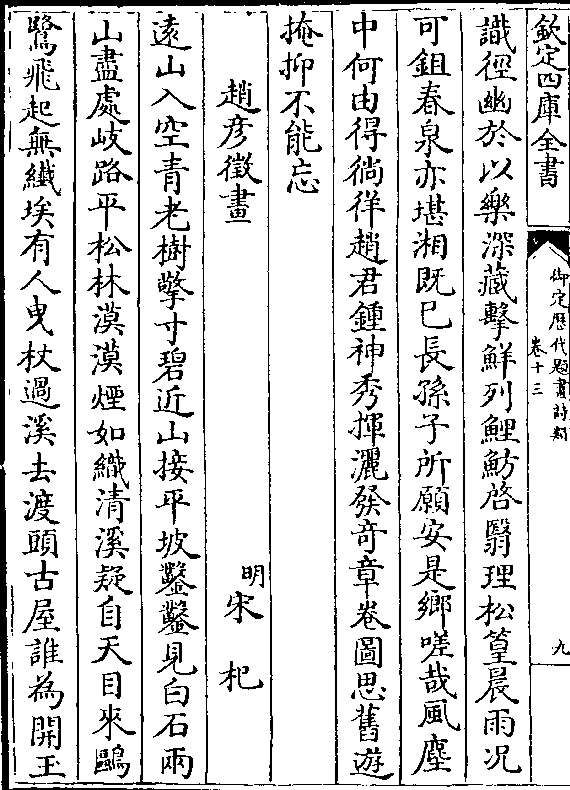 欽定四庫全書
御定歴代題畫詩類
卷十三
九
識徑幽於以樂深藏擊鮮列鯉魴啓翳理松篁晨雨况
可鉏春泉亦堪湘既已長孫子所願安是鄉嗟哉風塵
中何由得徜徉趙君鍾神秀揮灑發竒章卷圖思舊遊
掩抑不能忘
趙彦徵畫
明宋杞
逺山入空青老樹擎寸碧近山接平坡鑿鑿見白石兩
山盡處岐路平松林漠漠煙如織清溪疑自天目來鷗
鷺飛起無纎埃有人曳杖過溪去渡頭古屋誰為開玉